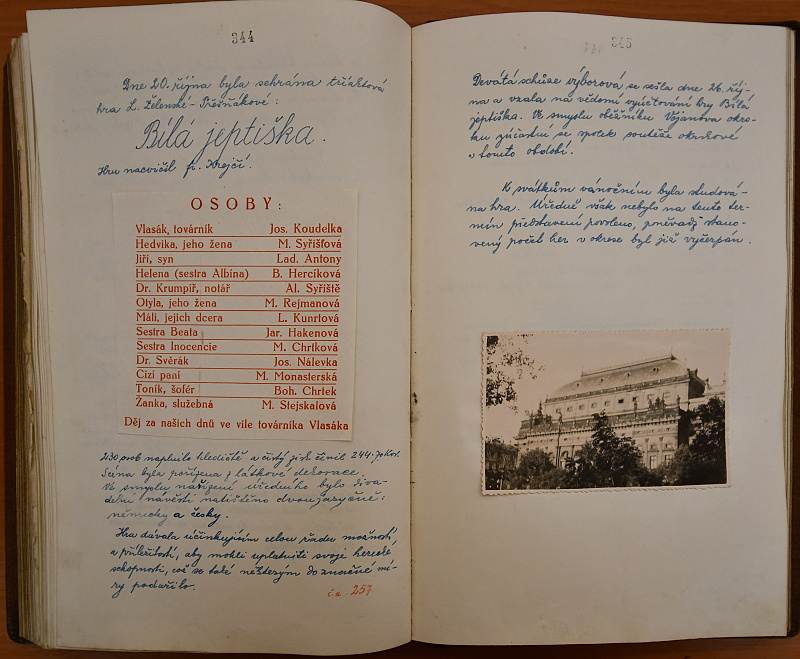 344
Dne 20. října byla sehrána tříaktová
hra L. Želenské-Třešňákové:
Bílá jeptiška.
Hru nacvičil fr. Krejčí.
OSOBY:
Vlasák, továrník Jos. Koudelka
Hedvika, jeho žena M. Syřišťová
Jiří, syn Lad. Antony
Helena (sestra Albína) B. Hercíková
Dr. Krumpíř, notář Al. Syřiště
Otyla, jeho žena M. Rejmanová
Máli, jejich dcera L. Kunrtová
Sestra Beata Jar. Hakenová
Sestra Inocencie M. Chrtková
Dr. Svěrák Jos. Nálevka
Cizí paní M. Monasterská
Toník, šofér Boh. Chrtek
Žanka, služebná M. Stejskalová
Děj za našich dnů ve vile továrníka Vlasáka
230 osob naplnilo hlediště a čistý zisk činil 244.70 Kor.
Scéna byla pořízena z látkové dekorace.
Ve smyslu nařízení úředního bylo diva-
delní návěstí natištěno dvoujazyčně:
německy a česky.
Hra dávala účinkujícím celou řadu možností
a příležitostí, aby mohli uplatniti svoje herecké
schopnosti, což se také některým do značné mí-
ry podařilo.
čs. 257
345
Devátá schůze výborová se sešla dne 26. říj-
na a vzala na vědomí vyúčtování hry Bílá
jeptiška. Ve smyslu oběžníku Vojanova okrs-
ku zúčastní se spolek soutěže okrskové
v tomto období.
K svátkům vánočním byla studová-
na hra. Úředně však nebylo na tento ter-
mín představení povoleno, poněvadž stano-
vený počet her v okrese byl již vyčerpán.